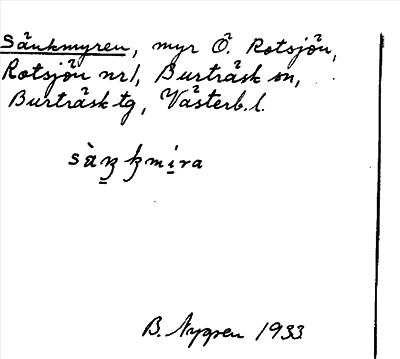 Sänkmyren, myr Ö. Rotsjön,
Rotsjön nr 1, Burträsk sn,
Burträsk tg, Västerb. l.
B. Nygren 1933